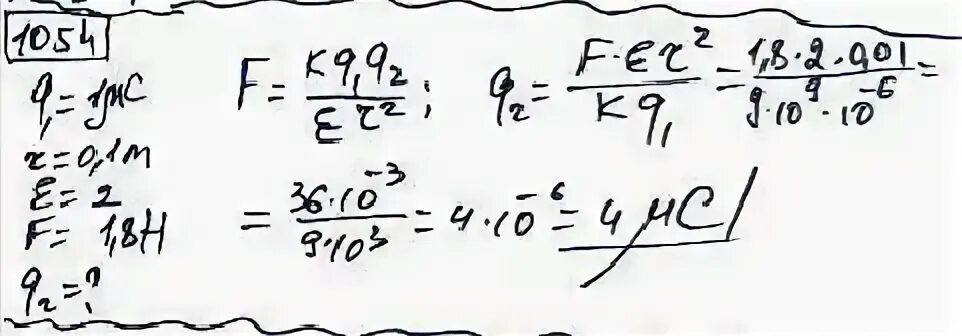 1054
q₁ = 1 мкС
r = 0,1 м
ε = 2
F = 1,8 Н
q₂ = ?
F = kq₁q₂ / εr² ; q₂ = F·εr² / kq₁ = 1,8·2·0,01 / 9·10⁹·10⁻⁶ =
= 36·10⁻³ / 9·10³ = 4·10⁻⁶ = 4 мкС